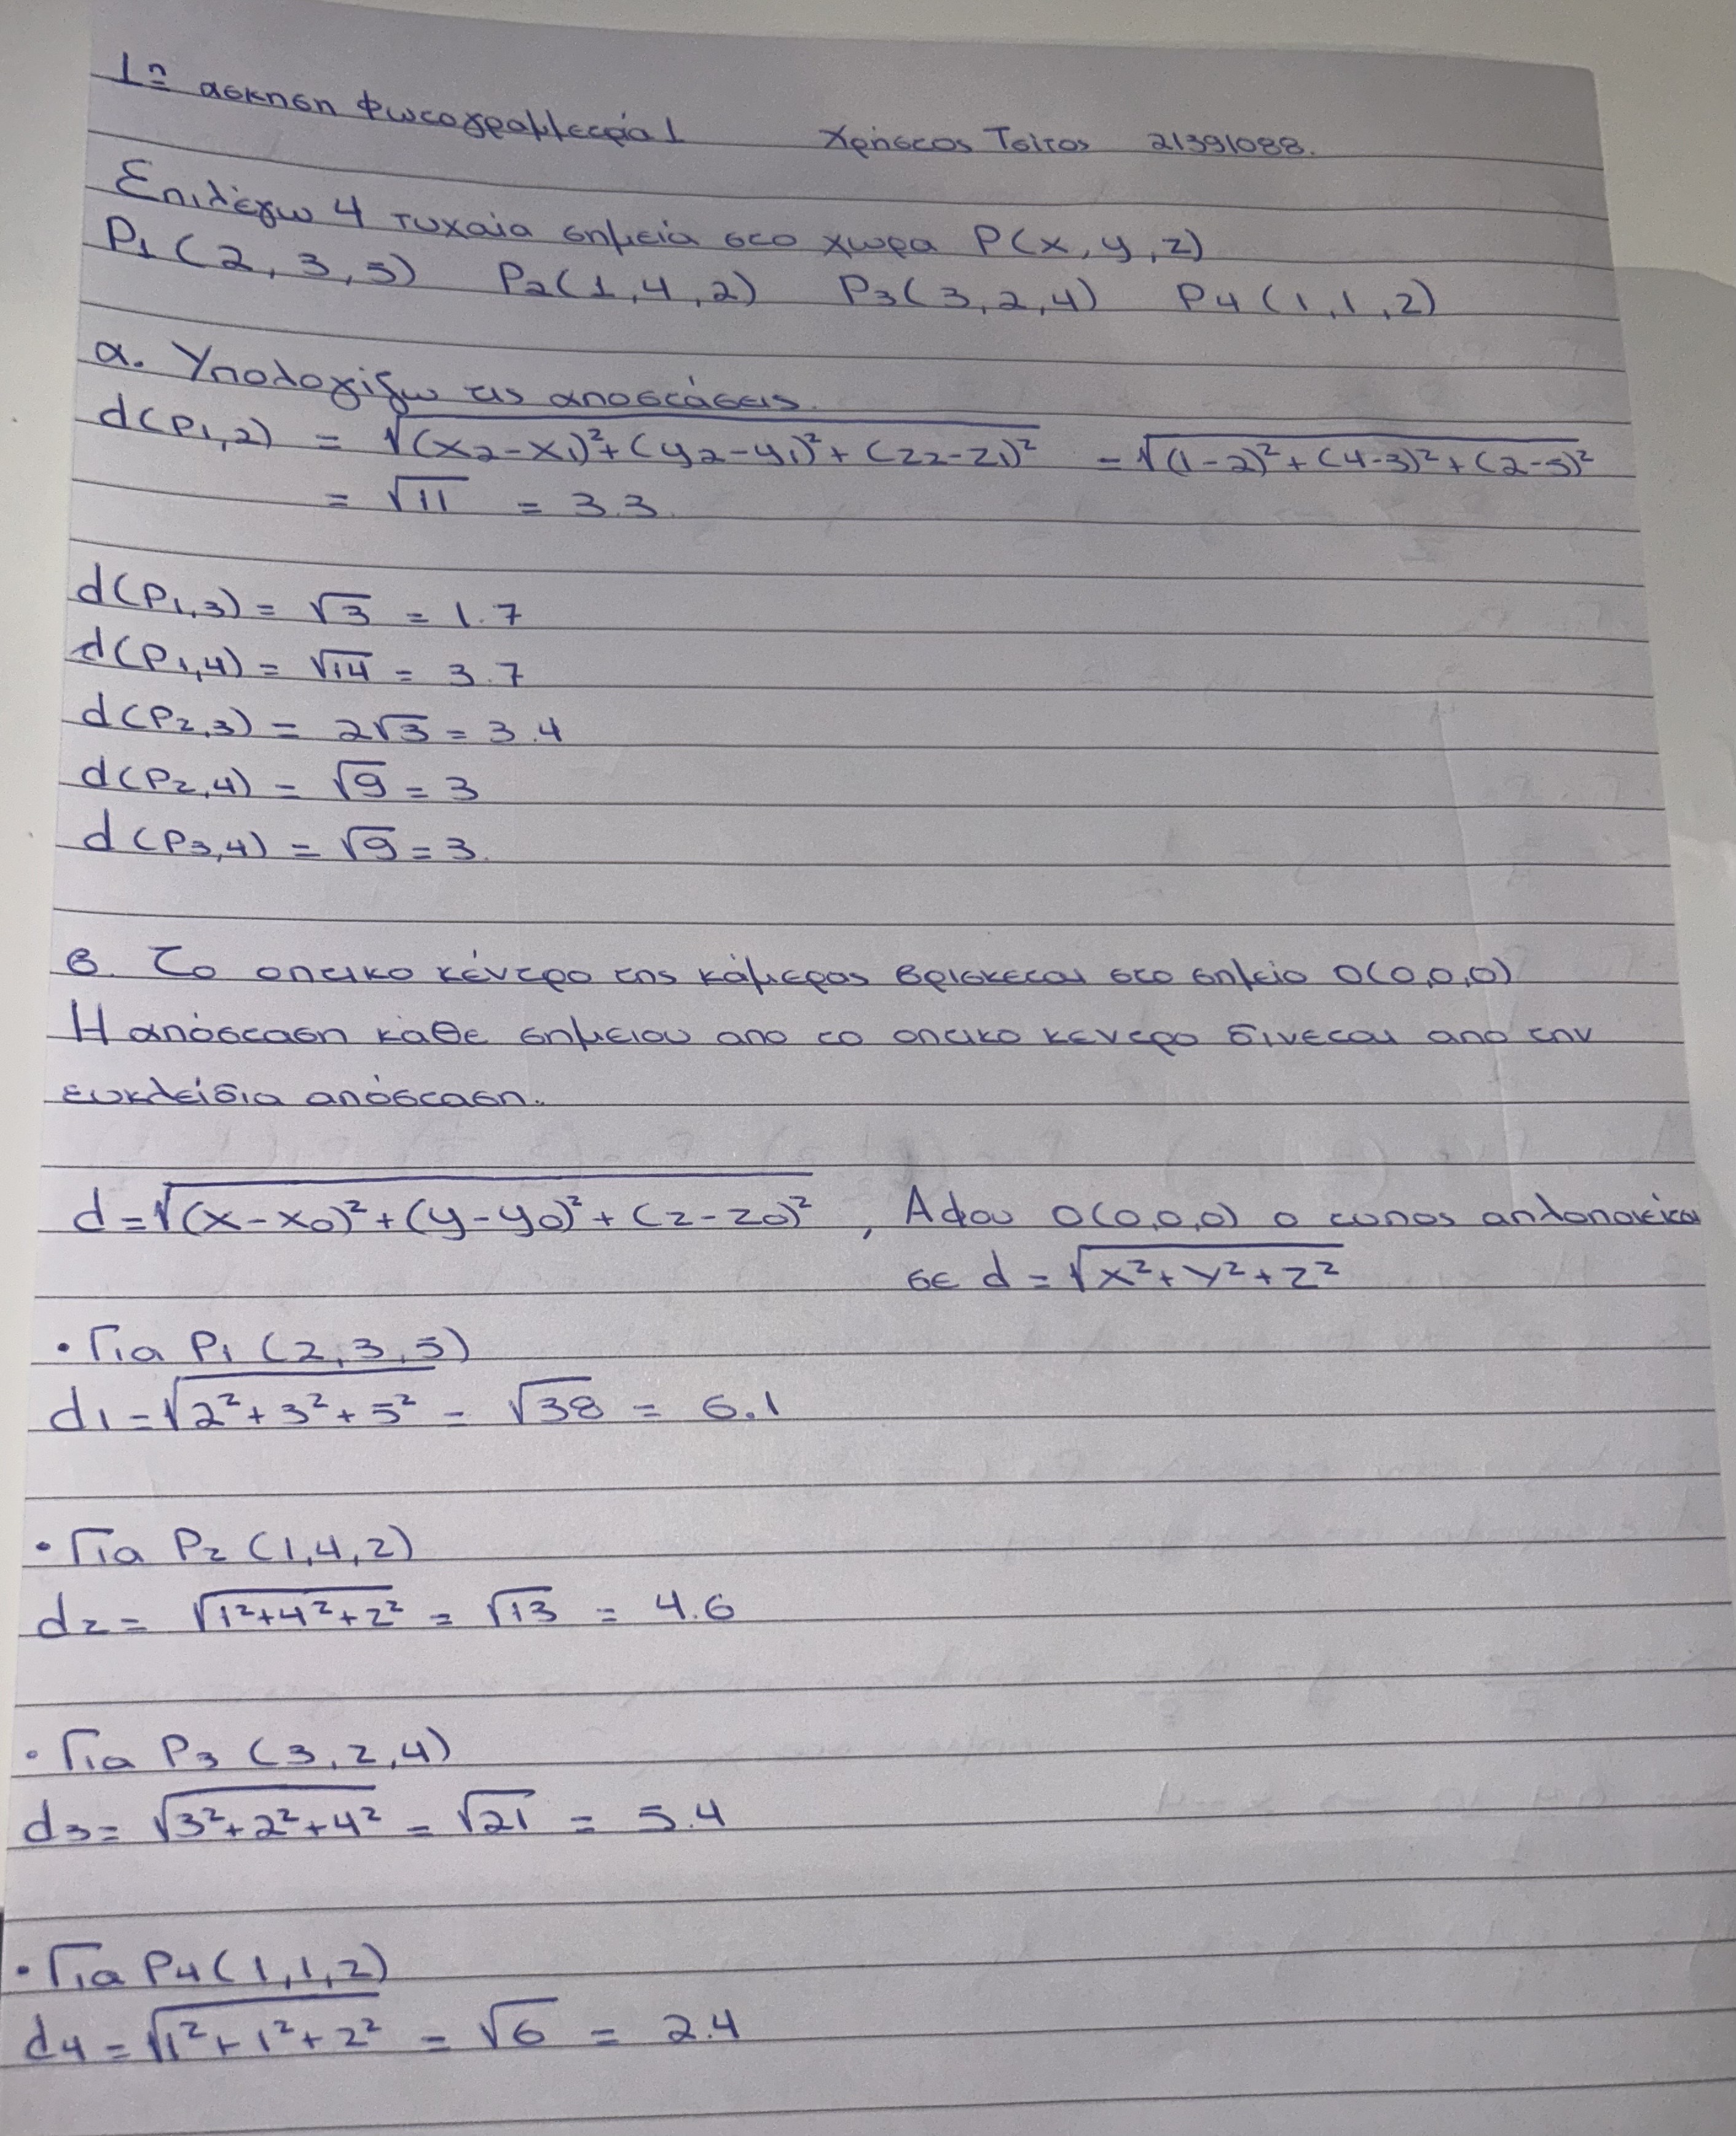 1η ασκηση Φωτογραμμετρία 1 Χρήστος Τσίτος 21391088.
Επιλέγω 4 τυχαία σημεία στο χώρο P(x,y,z)
P1(2,3,5) P2(1,4,2) P3(3,2,4) P4(1,1,2)
α. Υπολογίζω τις αποστάσεις.
d(P1,2) = √(x2-x1)²+(y2-y1)²+(z2-z1)² = √(1-2)²+(4-3)²+(2-5)²
= √11 = 3.3
d(P1,3) = √3 = 1.7
d(P1,4) = √14 = 3.7
d(P2,3) = 2√3 = 3.4
d(P2,4) = √9 = 3
d(P3,4) = √9 = 3.
β. Το οπτικο κέντρο της κάμερας βρισκεται στο σημείο Ο(0,0,0)
Η απόσταση καθε σημειου απο το οπτικο κεντρο δινεται απο την
ευκλείδια απόσταση.
d=√(x-x0)²+(y-y0)²+(z-z0)² , Αφου Ο(0,0,0) ο τυπος απλοποιείται
σε d=√x²+y²+z²
• Για P1 (2,3,5)
d1=√2²+3²+5² = √38 = 6.1
• Για P2 (1,4,2)
d2= √1²+4²+2² = √13 = 4.6
• Για P3 (3,2,4)
d3= √3²+2²+4² = √21 = 5.4
• Για P4(1,1,2)
d4=√1²+1²+2² = √6 = 2.4